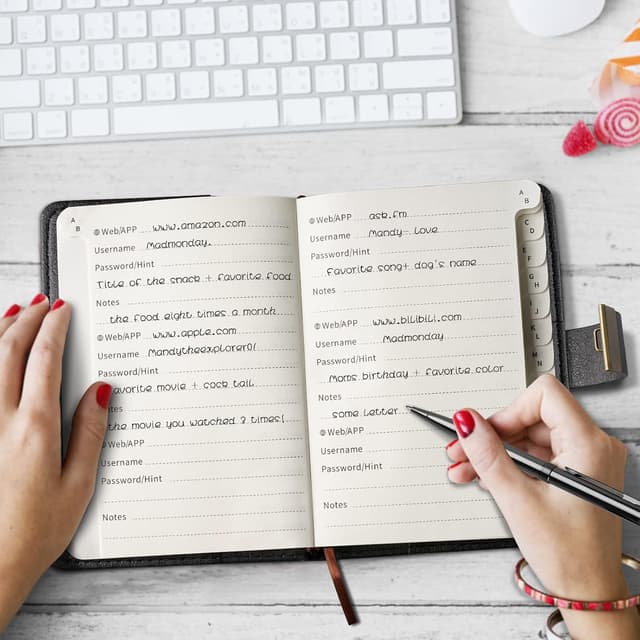 A
B
Web/APP www.amazon.com
Username Madmonday.
Password/Hint
Title of the snack + favorite food
Notes
the food eight times a month
Web/APP www.apple.com
Username Mandytheexplorer01
Password/Hint
favorite movie + cock tail
tes
the movie you watched 3 times!
Web/APP
Username
Password/Hint
Notes
Web/APP ask.fm
Username Mandy-Love
Password/Hint
favorite song+ dog's name
Notes
Web/APP www.bilibili.com
Username Madmonday
Password/Hint
Moms birthday + favorite color
Notes
some letter
Web/APP
Username
Password/Hint
Notes
A
B
C
D
E
F
G
H
I
J
K
L
M
N